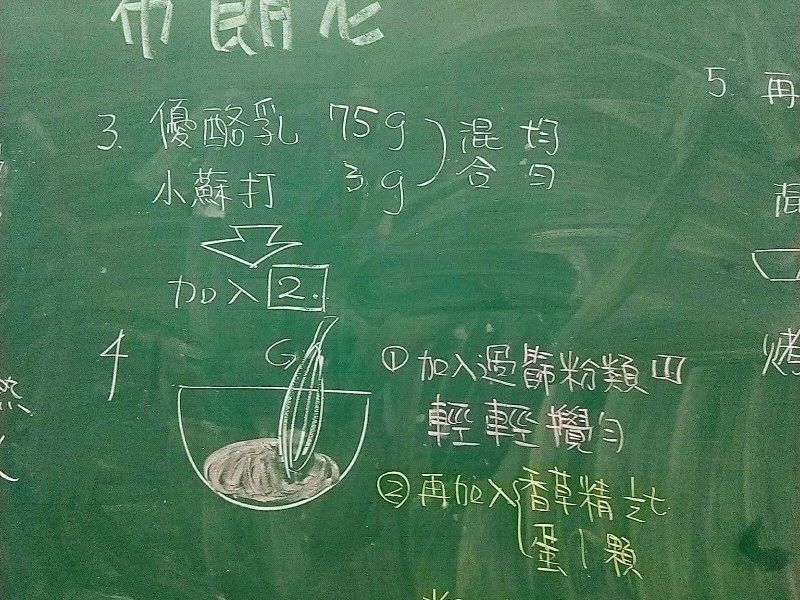 布朗尼
3. 優酪乳 75g
小蘇打 3g
混合 均勻
加入 2.
4
① 加入過篩粉類
輕輕攪勻
② 再加入 香草精 ½t
蛋1顆
5. 再
烤